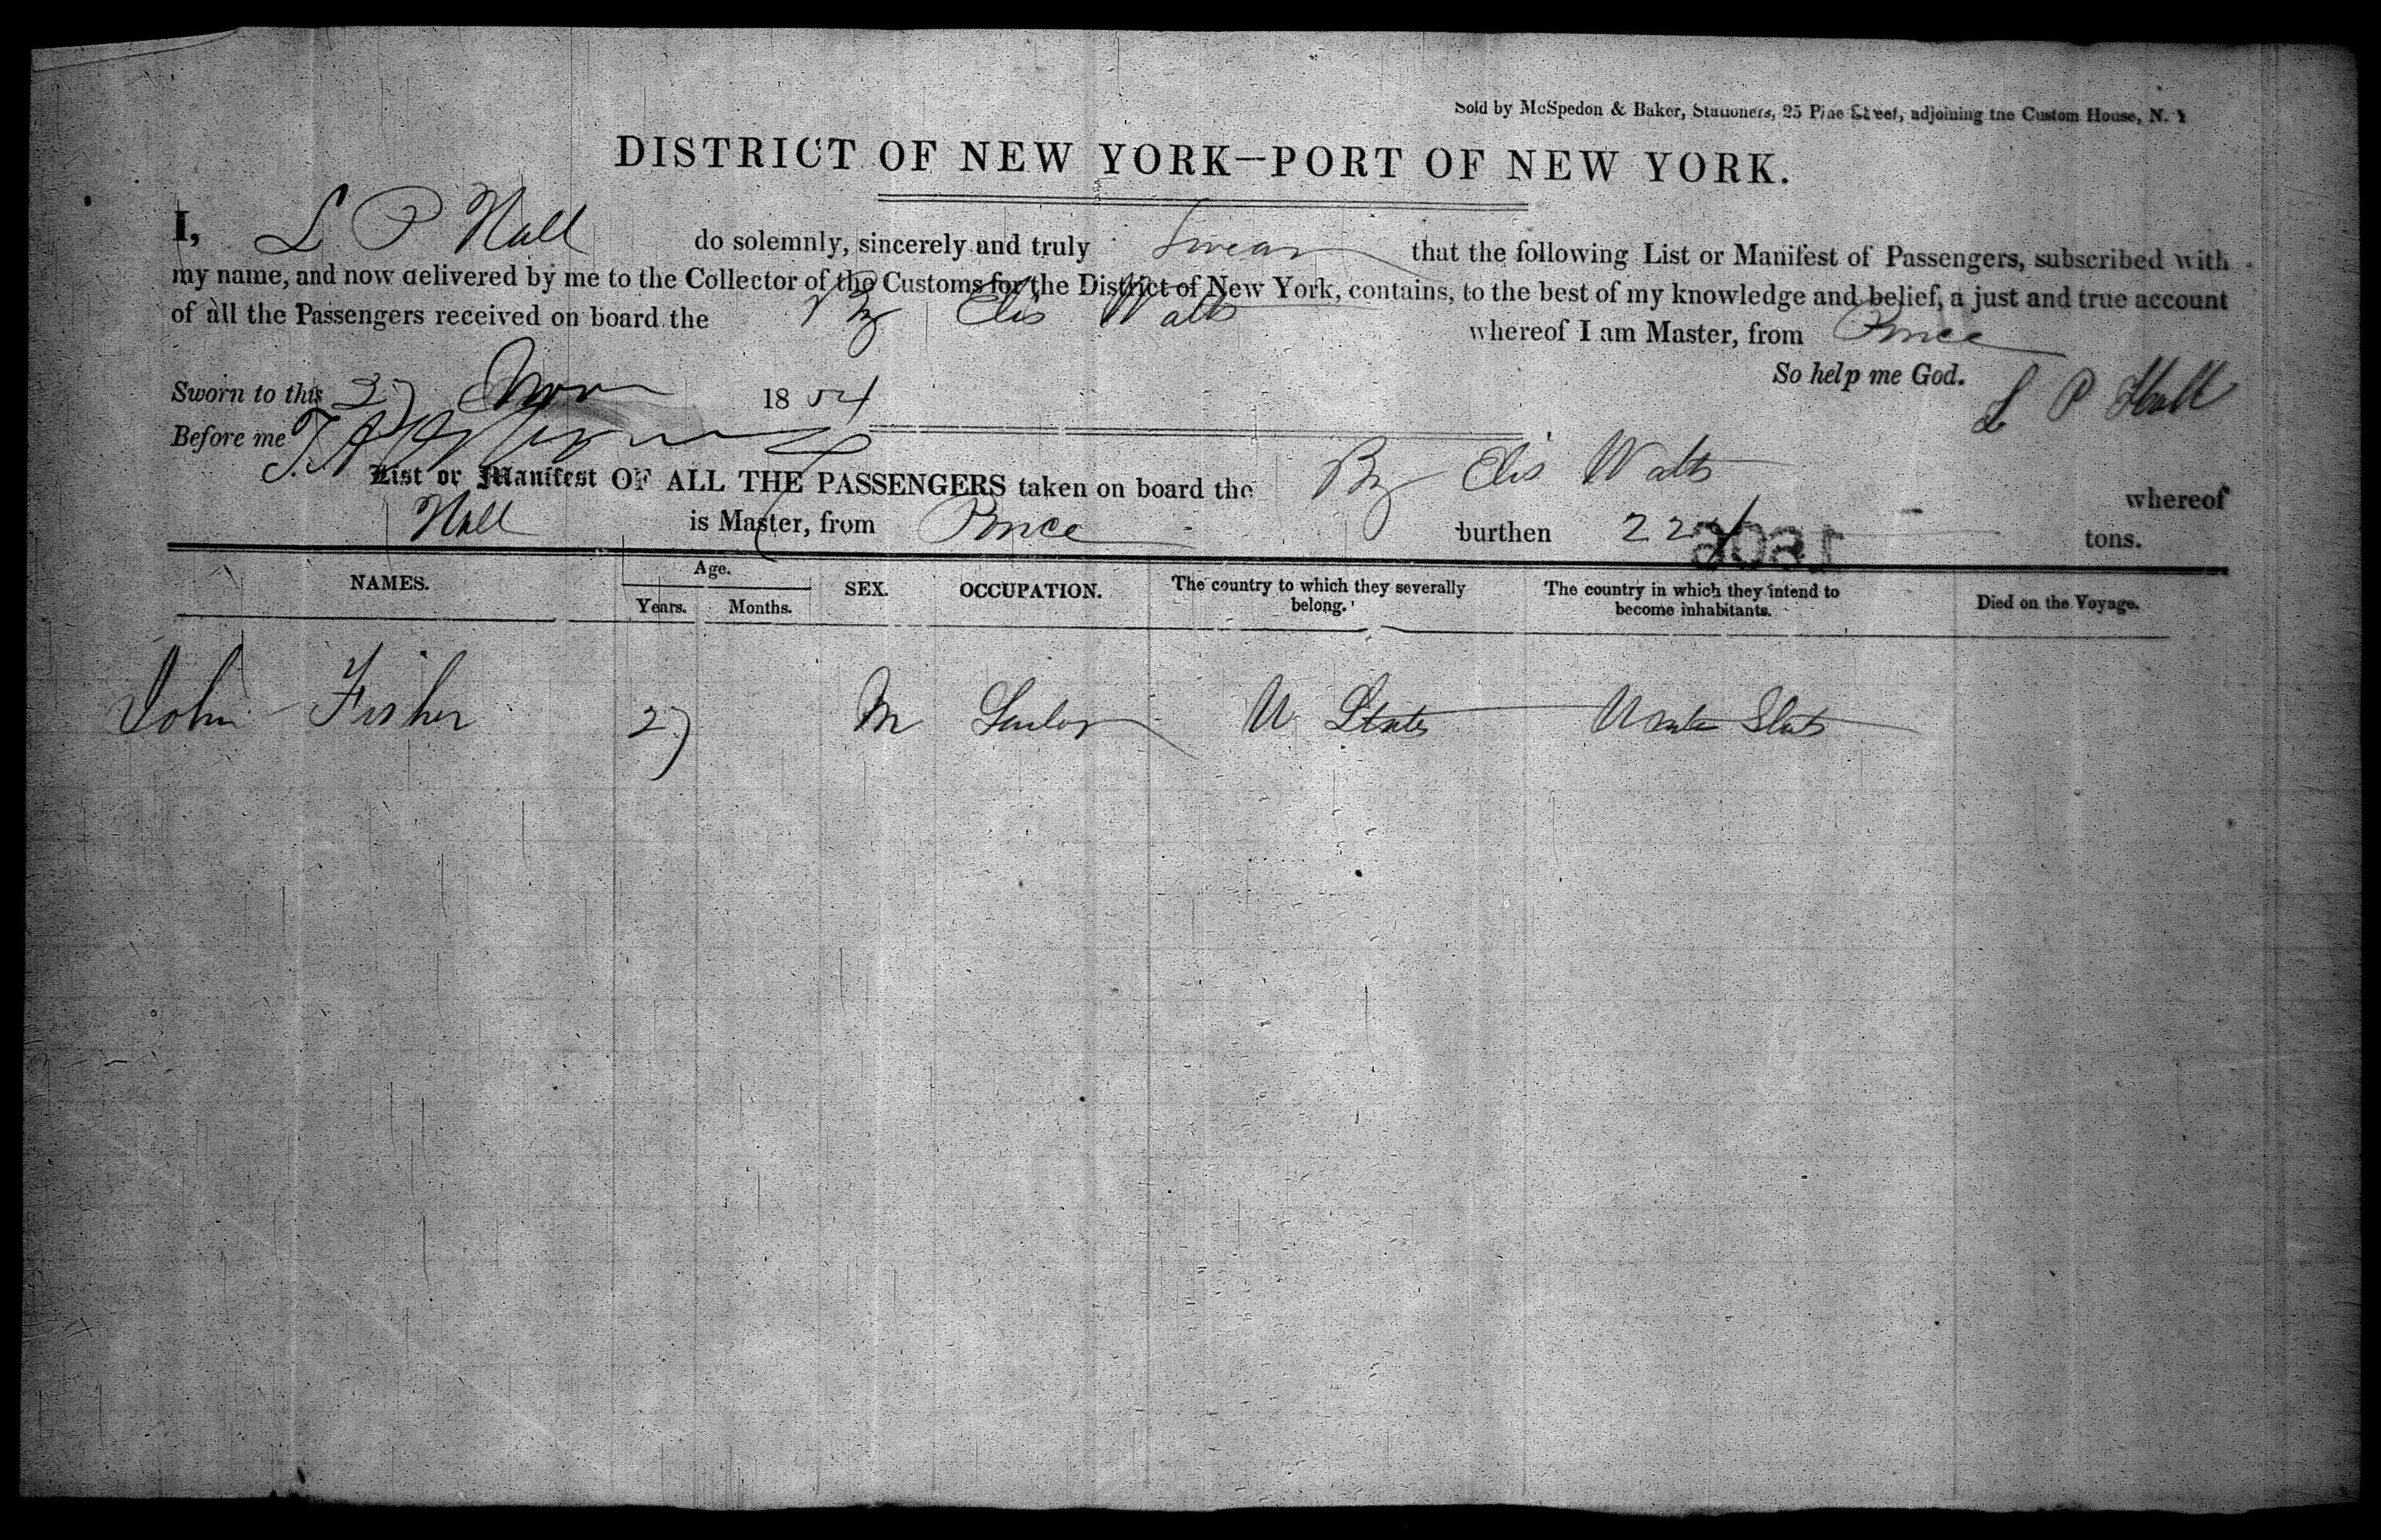 Sold by McSpedon & Baker, Stationers, 25 Pine Street, adjoining the Custom House, N. Y
DISTRICT OF NEW YORK—PORT OF NEW YORK.
I, L P Hall do solemnly, sincerely and truly Swear that the following List or Manifest of Passengers, subscribed with
my name, and now delivered by me to the Collector of the Customs for the District of New York, contains, to the best of my knowledge and belief, a just and true account
of all the Passengers received on board the Elis Watts whereof I am Master, from Ponce
So help me God.
L P Hall
Sworn to this 27 1854
Before me
List or Manifest OF ALL THE PASSENGERS taken on board the Elis Watts whereof
Hall is Master, from Ponce burthen 224 tons.
NAMES. Age. SEX. OCCUPATION. The country to which they severally belong. The country in which they intend to become inhabitants. Died on the Voyage.
Years. Months.
John Fisher 27 M Sailor U States Unite Stats